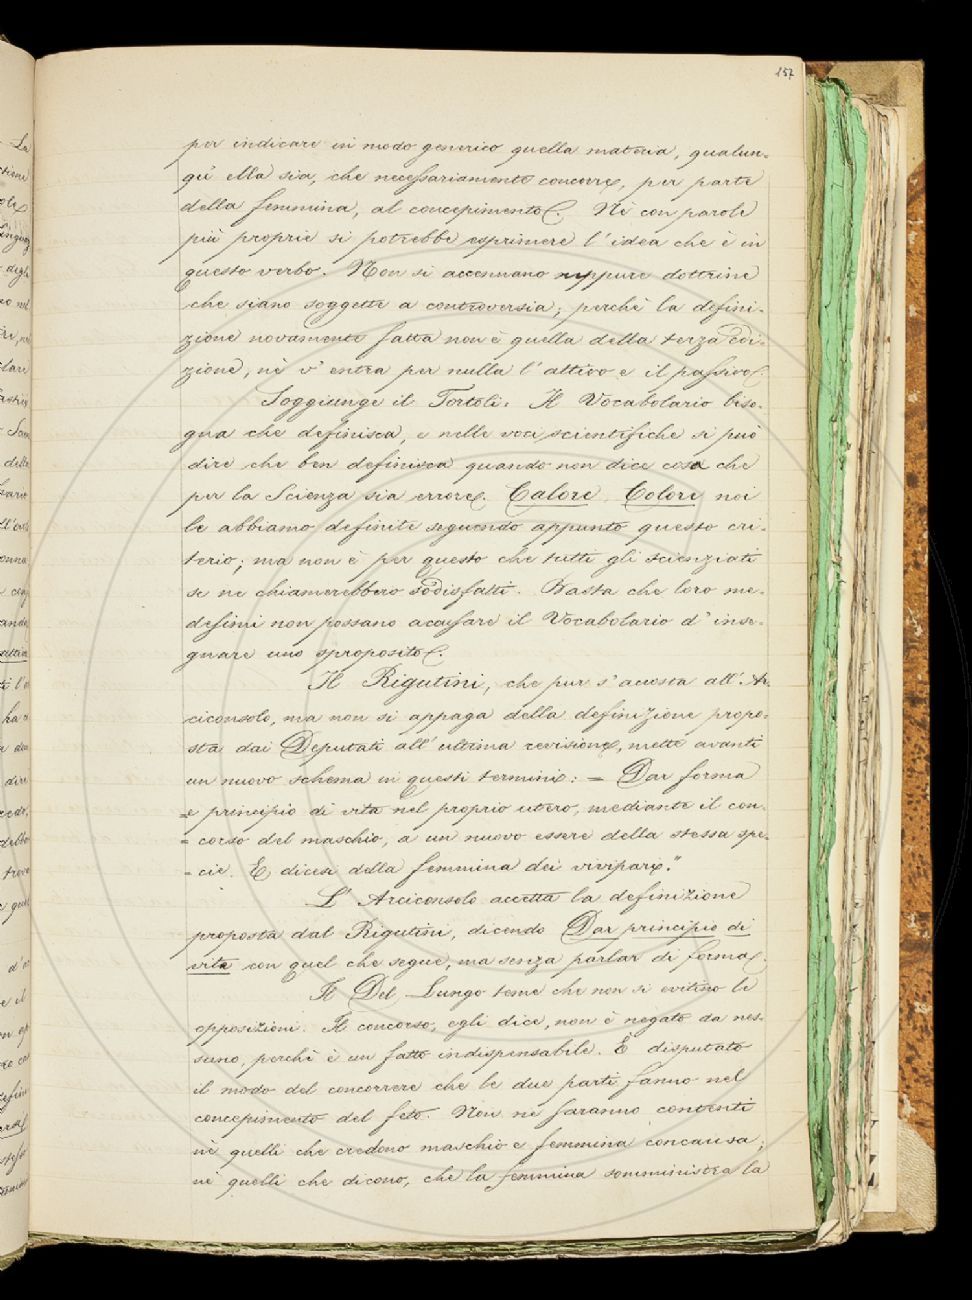 157
per indicare in modo generico quella materia, qualun-
qu' ella sia, che necessariamente concorre, per parte
della femmina, al concepimento. Nè con parole
più proprie si potrebbe esprimere l'idea che è in
questo verbo. Non si accennano neppure dottrine
che siano soggette a controversia; perchè la defini-
zione novamente fatta non è quella della terza edi-
zione, nè v' entra per nulla l'attivo e il passivo.
Soggiunge il Tortoli: Il Vocabolario biso-
gna che definisca, e nelle voci scientifiche si può
dire che ben definisca quando non dice cosa che
per la Scienza sia errore. Calore, Colore noi
le abbiamo definite seguendo appunto questo cri-
terio; ma non è per questo che tutti gli scienziati
se ne chiamerebbero sodisfatti. Basta che loro me-
desimi non possano accusare il Vocabolario d' inse-
gnare uno sproposito.
Il Rigutini, che pur s' accosta all' Ar-
ciconsolo, ma non si appaga della definizione propo-
sta dai Deputati all' ultima revisione, mette avanti
un nuovo schema in questi termini: = Dar forma
= e principio di vita nel proprio utero, mediante il con-
= corso del maschio, a un nuovo essere della stessa spe-
= cie. E dicesi della femmina dei vivipari."
L' Arciconsolo accetta la definizione
proposta dal Rigutini, dicendo Dar principio di
vita con quel che segue, ma senza parlar di forma.
Il Del Lungo teme che non si evitino le
opposizioni. Il concorso, egli dice, non è negato da nes-
suno, perchè è un fatto indispensabile. È disputato
il modo del concorrere che le due parti fanno nel
concepimento del feto. Non ne saranno contenti
nè quelli che credono maschio e femmina concausa;
nè quelli che dicono, che la femmina somministra la